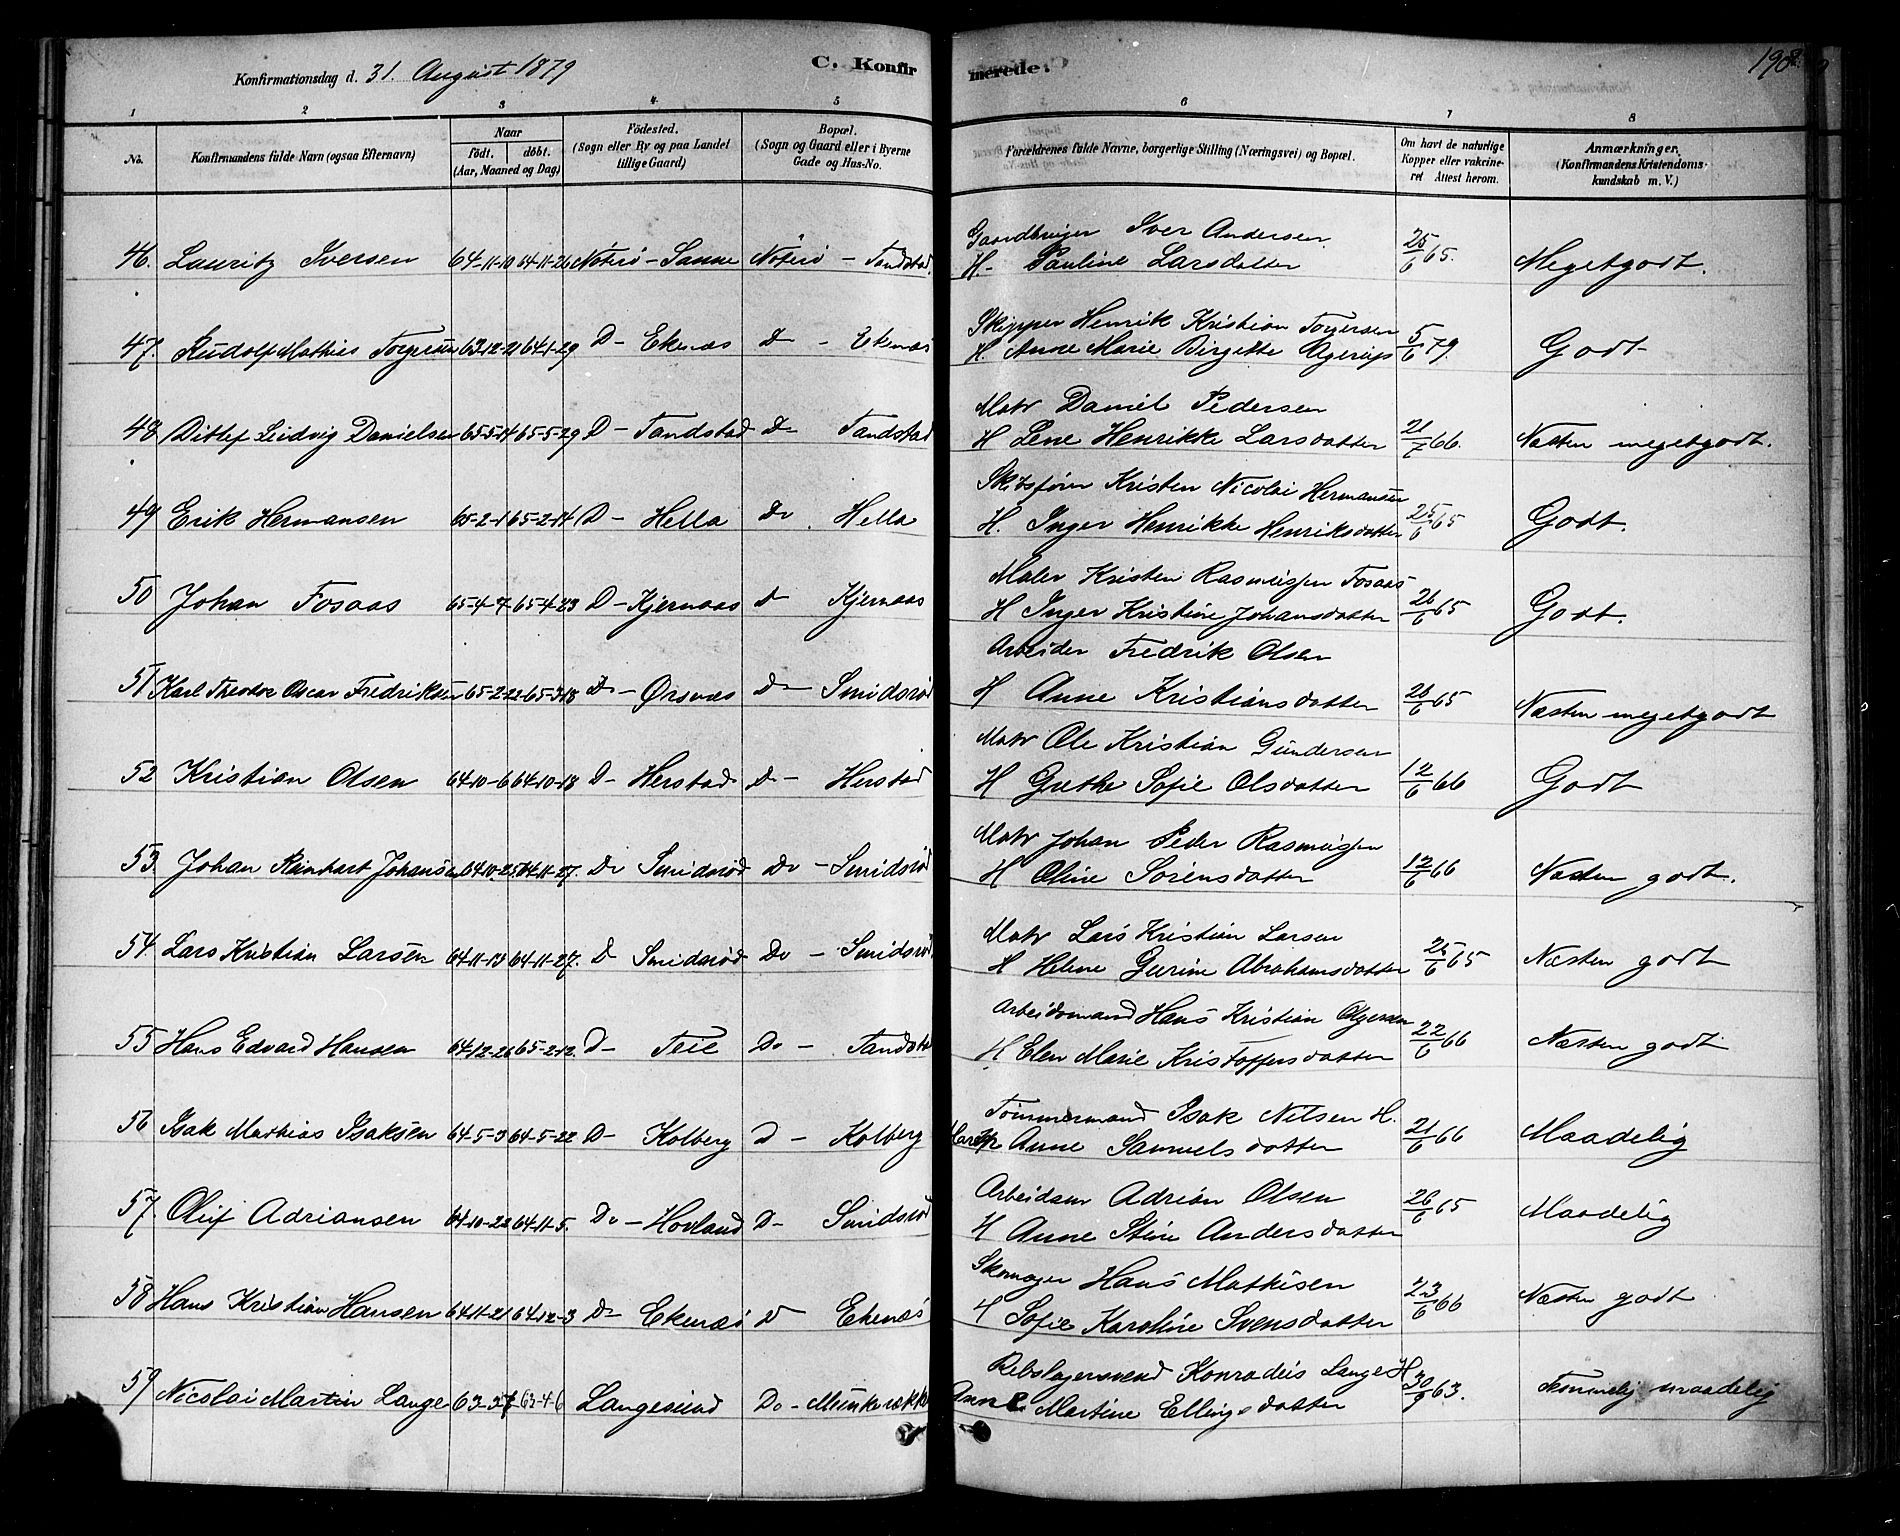 Konfirmationsdag d. 31. August 1879
C. Konfirmerede.
198.
1 2 3 4. 5 6 7 8
No.
Konfirmandens fulde Navn (ogsaa Efternavn)
Naar
födt. döbt.
(Aar, Maaned og Dag)
Födested.
(Sogn eller By og paa Landet
tillige Gaard)
Bopæl.
(Sogn og Gaard eller i Byerne
Gade og Hus-No.
Forældrenes fulde Navne, borgerlige Stilling (Næringsvei) og Bopæl.
Om havt de naturlige
Kopper eller vakcine-
ret Attest herom.
Anmærkninger.
(Konfirmandens Kristendoms-
kundskab m. V.)
46. Lauritz Iversen 64-11-10 64-11-26 Nöterö - Sanne Nöterö - Tandstad.
Gaardbruger Iver Andersen
H. Pauline Larsdatter 25/6 65. Megetgodt.
47. Rudolf Mathies Torgersen 63-12-21 64-1-29 D - Ekenæs D - Ekenæs
Skipper Henrik Kristian Torgersen
H. Anne Marie Birgette Agerup 5/6 79. Godt
48 Ditlef Ludvig Danielsen 65-5-14 65-5-29 D - Tandstad D Tandstad
Matr Daniel Pedersen
H Lene Henrikke Larsdatter 21/7 66. Næsten megetgodt.
49 Erik Hermansen 65-2-1 65-2-14 D - Hella Do Hella
Skibsförer Kristen Nicolai Hermansen
H. Inger Henrikke Henriksdatter 25/6 65 Godt.
50 Johan Fosaas 65-4-7 65-4-23 D - Kjernaas d Kjernaas
Maler Kristen Rasmusjen Fosaas
H Inger Kristine Johansdatter 26/6 65 Godt.
51 Karl Theodor Oscar Fredriksen 65-2-22 65-3-18 D - Ørsnæs D - Smidsröd
Arbeider Fredrik Olsen
H Anne Kristiansdatter 26/6 65 Næsten megetgodt
52 Kristian Olsen 64-10-6 64-10-18 D - Herstad D - Herstad
Matr Ole Kristian Gundersen
H Grethe Sofie Olsdatter 12/6 66 Godt
53 Johan Reinhart Johansen 64-10-25 64-11-27. Do Smidsröd Do - Smidsröd
Matr Johan Peder Rasmusjen
H Oline Sörensdatter 12/6 66 Næsten godt.
54. Lars Kristian Larsen 64-11-13 64-11-27. D Smidsröd Do - Smidsröd
Matr Lars Kristian Larsen
H Helene Gurine Abrahamsdatter 25/6 65 Næsten godt
55 Hans Edvard Hansen 64-12-26 65-2-12. D - Teie Do - Tandstad
Arbeidsmand Hans Kristian
H. Elen Marie Kristoffersdatter 22/6 66 Næsten godt
56 Isak Mathias Isaksen 64-5-3 64-5-22 D - Kolberg D - Kolberg
Tömmermand Isak Nilsen H.
Anne Samuelsdatter 21/6 66 Maadelig
57 Oluf Adriansen 64-10-22 64-11-5. Do - Hovland D - Smidsröd
Arbeidsm Adrian Olsen
H Anne Stine Andersdatter 26/6 65 Maadelig
58 Hans Kristian Hansen 64-11-21 64-12-3 D - Ekenæs D Ekenæs
Skomager Hans Mathisen
H Sofie Karoline Svensdatter 23/6 66 Næsten godt
59 Nicolai Martin Lange 63-3-7 63-4-6 Langesund Do - Munkerække
Rebslagersvend Konradeis Lange H
Anne Martine Ellingsdatter 30/9 63. Temmelig maadelig